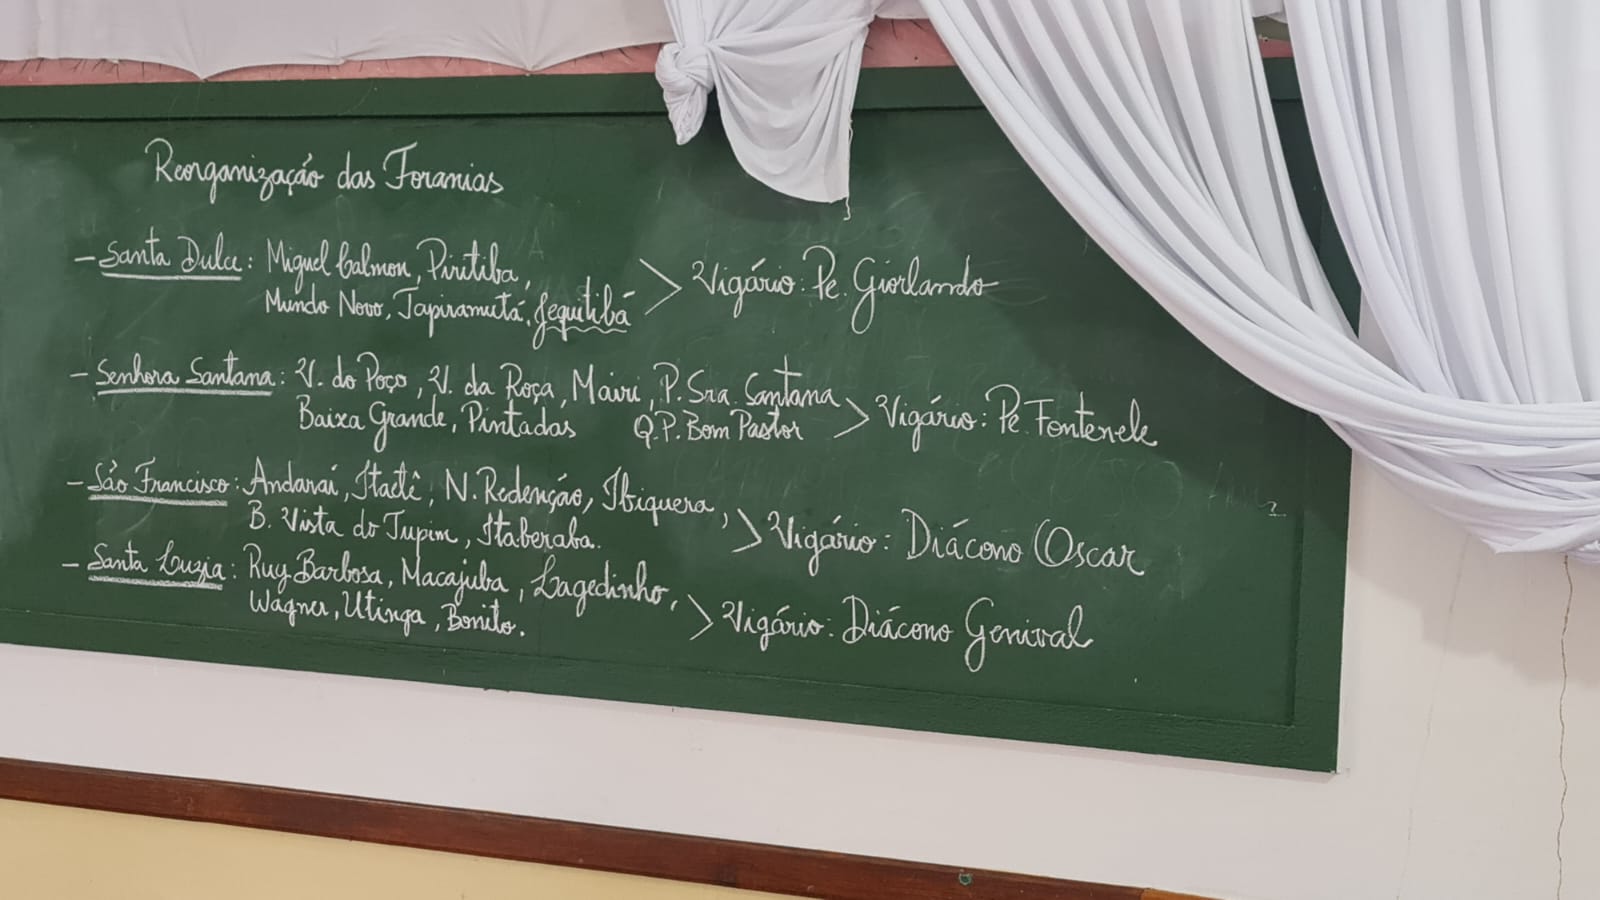 Reorganização das Foranias
- Santa Dulce: Miguel Calmon, Piritiba,
Mundo Novo, Tapiramutá, Jequitibá > Vigário: Pe. Giorlando
- Senhora Santana: V. do Poço, V. da Roça, Mairi, P. Sra. Santana
Baixa Grande, Pintadas Q.P. Bom Pastor > Vigário: Pe Fontenele
- São Francisco: Andaraí, Itaetê, N. Redenção, Ibiquera,
B. Vista do Tupim, Itaberaba. > Vigário: Diácono Oscar
- Santa Luzia: Ruy Barbosa, Macajuba, Lagedinho,
Wagner, Utinga, Bonito. > Vigário: Diácono Genival